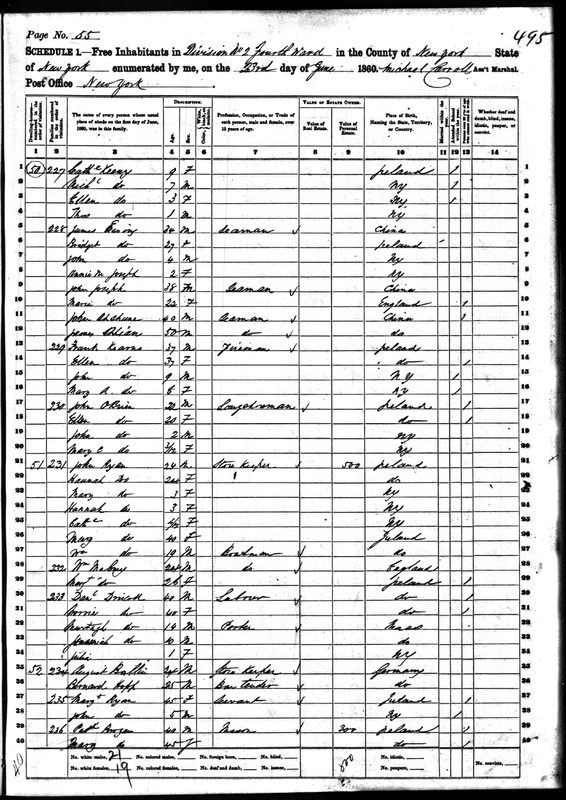 Page No. 55
495
SCHEDULE 1.—Free Inhabitants in Division No 2 Fourth Ward in the County of New York State
of New York enumerated by me, on the 23rd day of June 1860. Michael Carroll Ass't Marshal.
Post Office New York
DESCRIPTION.
VALUE OF ESTATE OWNED.
The name of every person whose usual place of abode on the first day of June, 1860, was in this family.
Age.
Sex.
Profession, Occupation, or Trade of each person, male and female, over 15 years of age.
Value of Real Estate.
Value of Personal Estate.
Place of Birth, Naming the State, Territory, or Country.
Whether deaf and dumb, blind, insane, idiotic, pauper, or convict.
1 2 3 4 5 6 7 8 9 10 11 12 13 14
1 50 227 9 F Ireland 1
2 do 7 M NY 1
3 Ellen do 3 F NY 1
4 Thos do 1 M NY
5 228 James 34 M Seaman China
6 Bridget do 27 F Ireland
7 John do 4 M NY
8 Annie M Joseph 2 F NY
9 John Joseph 38 M Seaman China
10 Maria do 22 F England 1
11 John 40 M Seaman China 1
12 James 50 M do do
13 229 Frank Kearns 37 M Fireman Ireland
14 Ellen do 37 F do 1
15 John do 9 M N.Y 1
16 Mary A. do 8 F NY 1
17 230 John O'Brien 23 M Longshoreman Ireland 1
18 Ellen do 20 F do 1
19 John do 2 M NY
20 Mary C do F NY
21 51 231 John Ryan 24 M Store Keeper 500 Ireland
22 Hannah Do 24 F do
23 Mary do 3 F NY
24 Hannah do 3 F NY
25 Cathe do F NY
26 Mary do 40 F Ireland
27 Wm do 19 M Boatman do
28 232 Wm 24 M do England
29 Margt do 26 F Ireland 1
30 233 Danl Driscoll 40 M Labour do 1
31 Norrie do 40 F do 1
32 Murtagh do 14 M Porter Mass
33 Jeremiah do 10 M do
34 Julia 1 F NY
35 52 234 August 24 M Store Keeper Germany
36 Bernard Hopp 25 M Bar tender do
37 235 Margt Ryan 45 F Servant Ireland 1
38 John do 5 M NY 1
39 236 40 M Mason 300 Ireland 1
40 Mary do 45 F do 1
No. white males, 21 No. colored males, No. foreign born, No. blind,
No. white females, 19 No. colored females, No. deaf and dumb, No. insane,
800
No. idiotic,
No. paupers,
No. convicts,
40